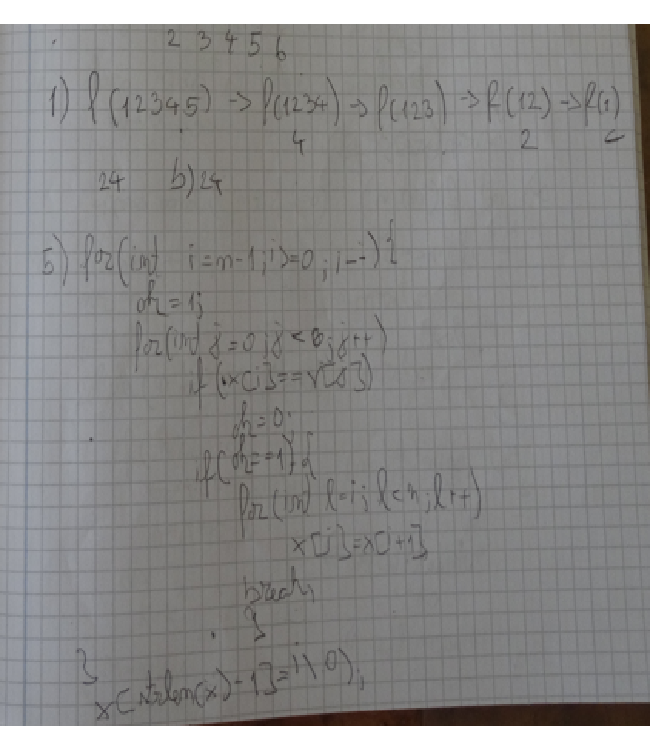 2 3 4 5 6
1) f(12345) -> f(1234) -> f(123) -> f(12) -> f(1)
4 2
24 b) 24
5) for(int i=n-1; i>=0; i--){
ok=1;
for(int j=0; j<8; j++)
if(x[i]==v[j])
ok=0;
if(ok==1){
for(int l=i; l<n; l++)
x[i]=x[i+1]
break;
}
}
x[strlen(x)-1]='\0';